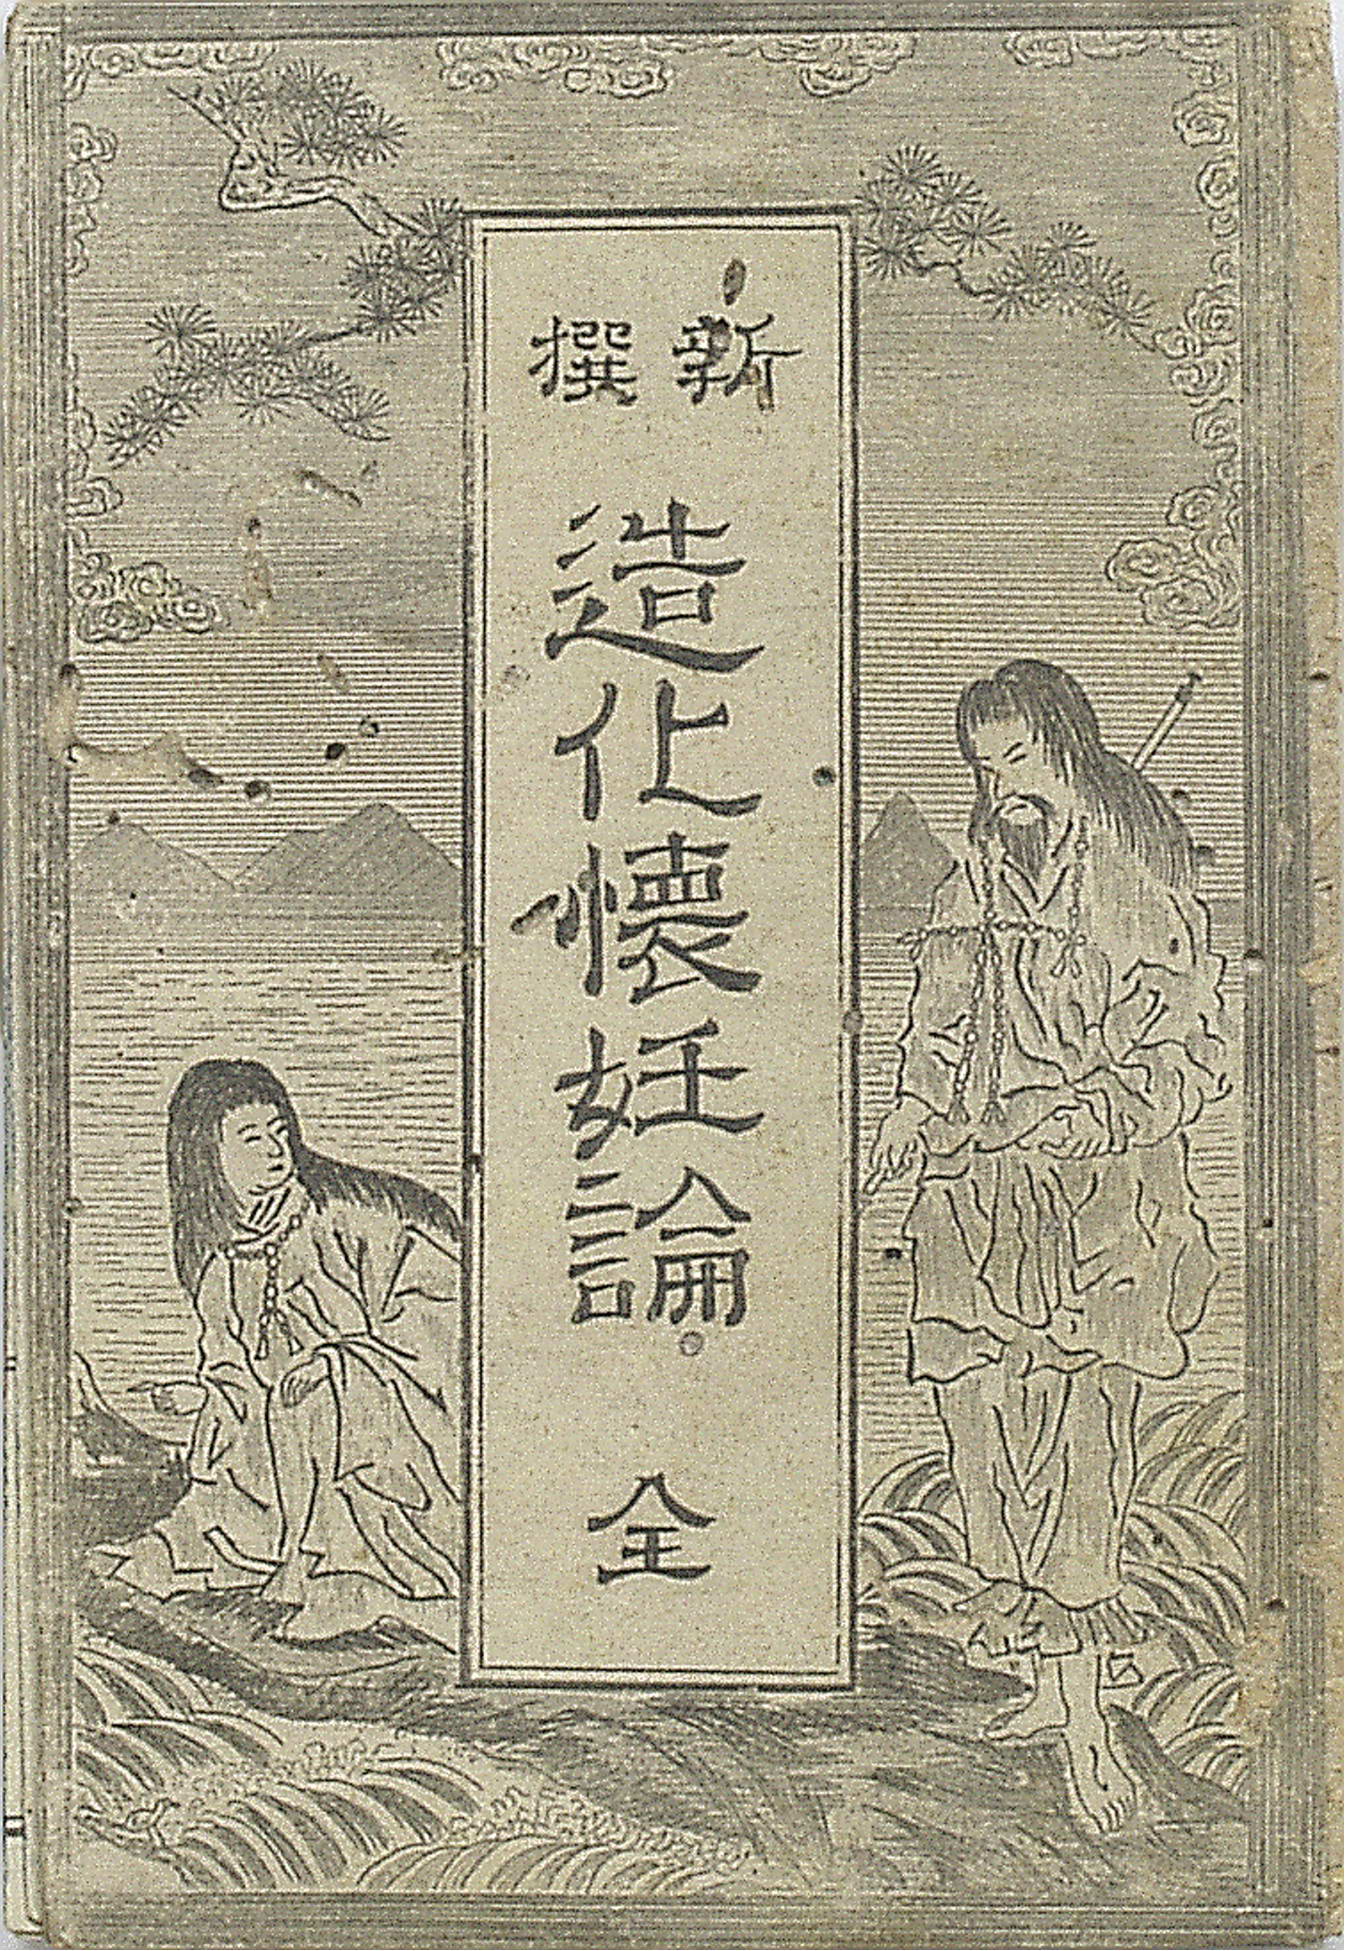 新撰
造化懐妊論
全